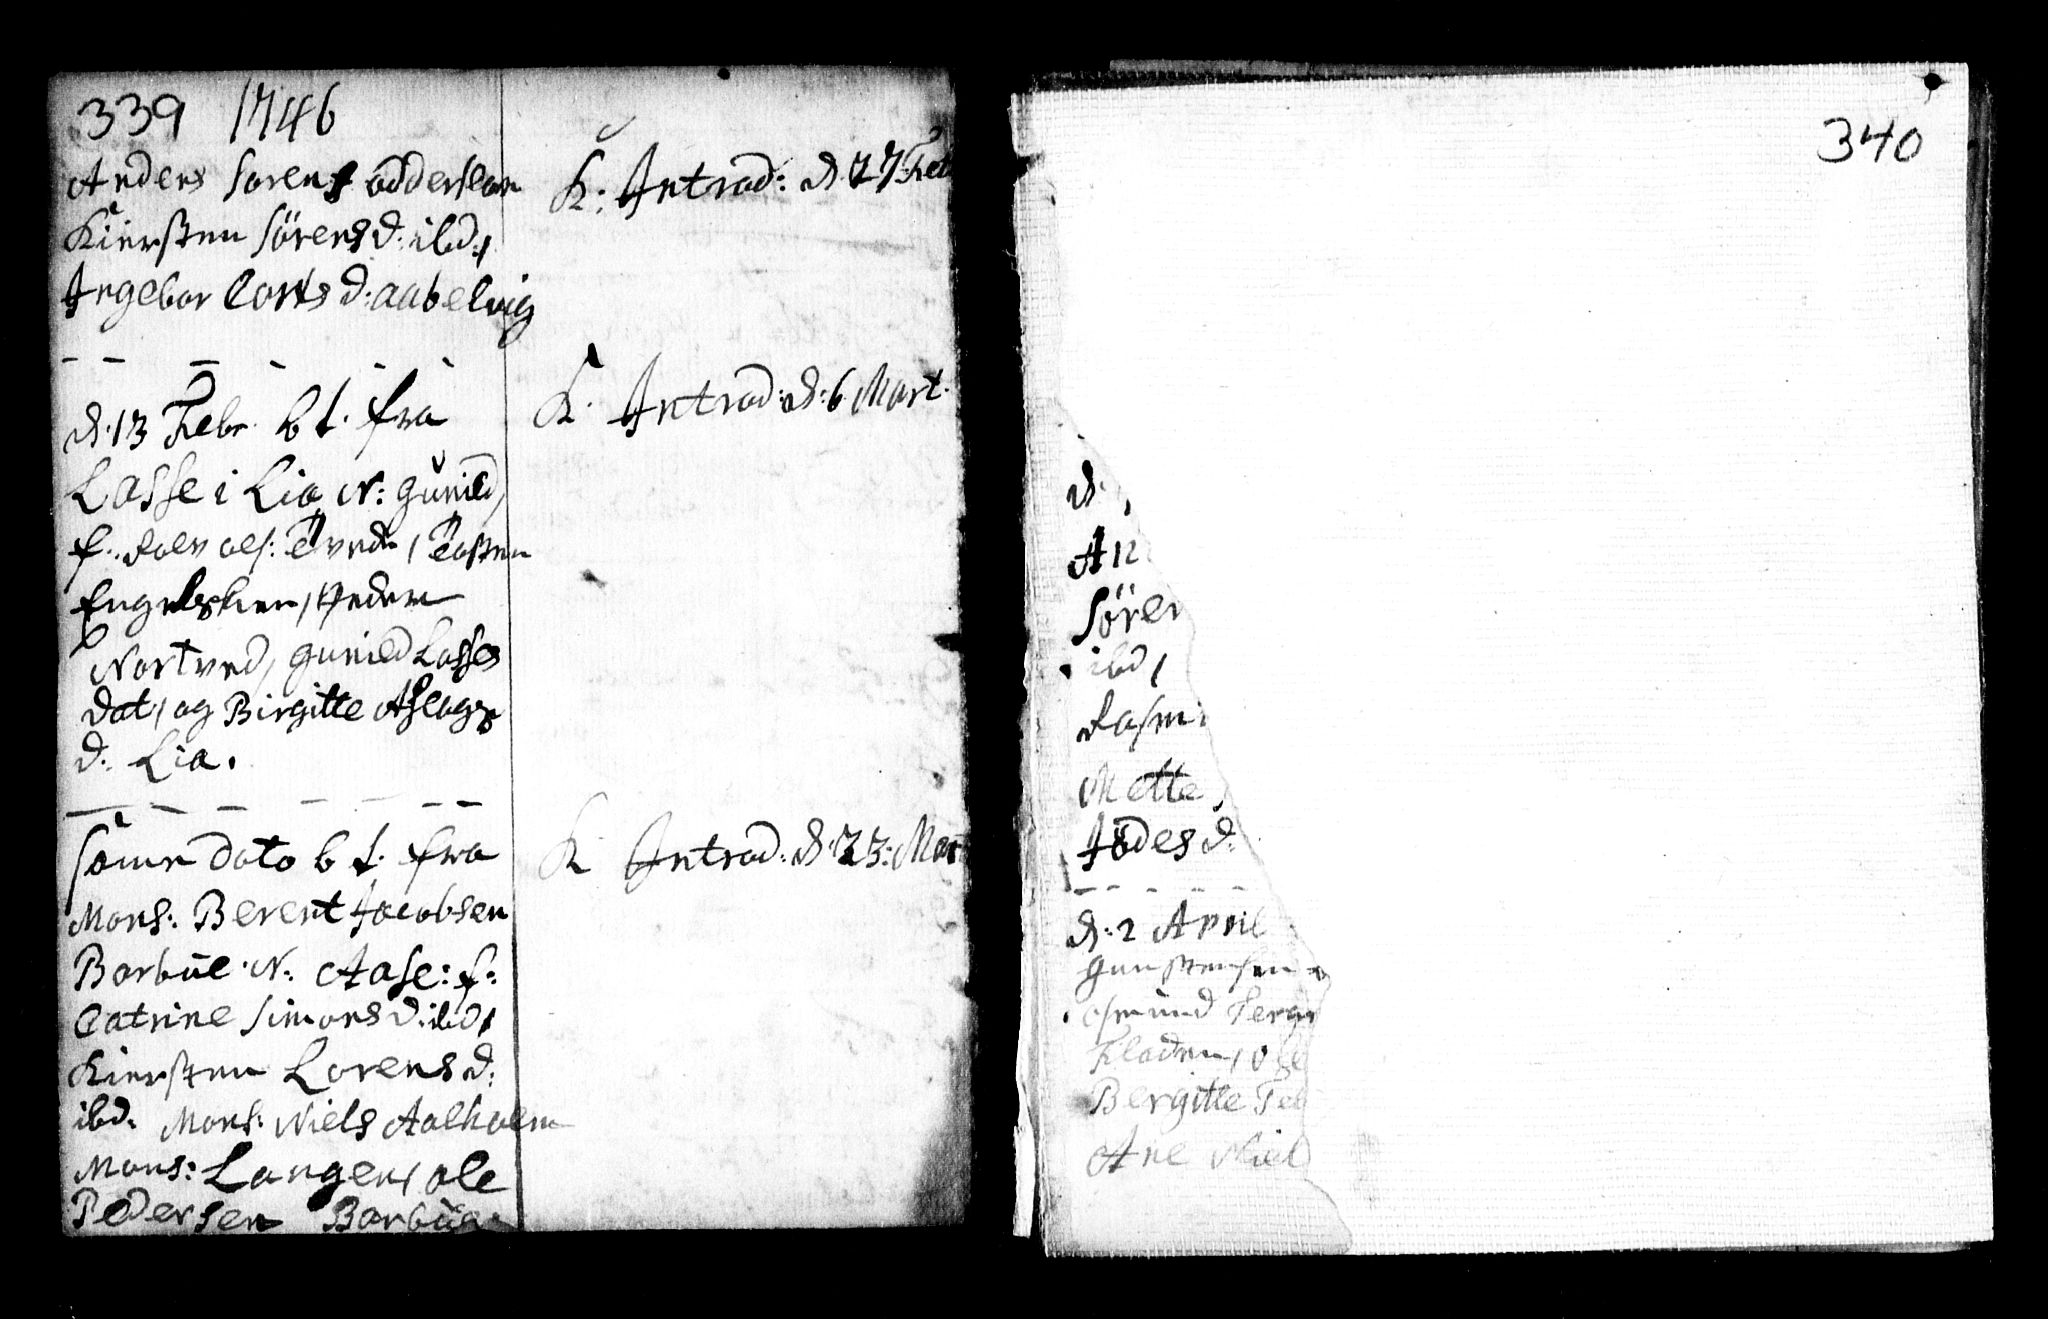 339 1746
Anders Sorens odderslon
Kiersten Sörens d: ibd:,
Ingebor Corts d: aabelvig
d. 13 Febr. b t. fra
Lasse i Lia N: gunild,
f. Rolv ols: Tved, Tosten
Engelsken, Peder
Nortved, gunild Lasses
dat, og Birgitte Aslags
d. Lia.
Same Dato b t. fra
Mons: Berent Jacobsen
Barbue N: Aase: f:
Catrine Simons d: ibd,
Kiersten Lorens d:
ibd. Mons: Niels Aalholm
Mons: Langen, ole
Pedersen Barbue
K: Introd: d. 27 Feb
K. Introd: d: 6 Mart.
K Introd: d. 23: Mar
340
d.
An
Sören
ibd,
Rasm
Mette
d:
d: 2 April
gunstensen
osmund Terg
Fladen, ol
Bergitte Te
Ane Niel